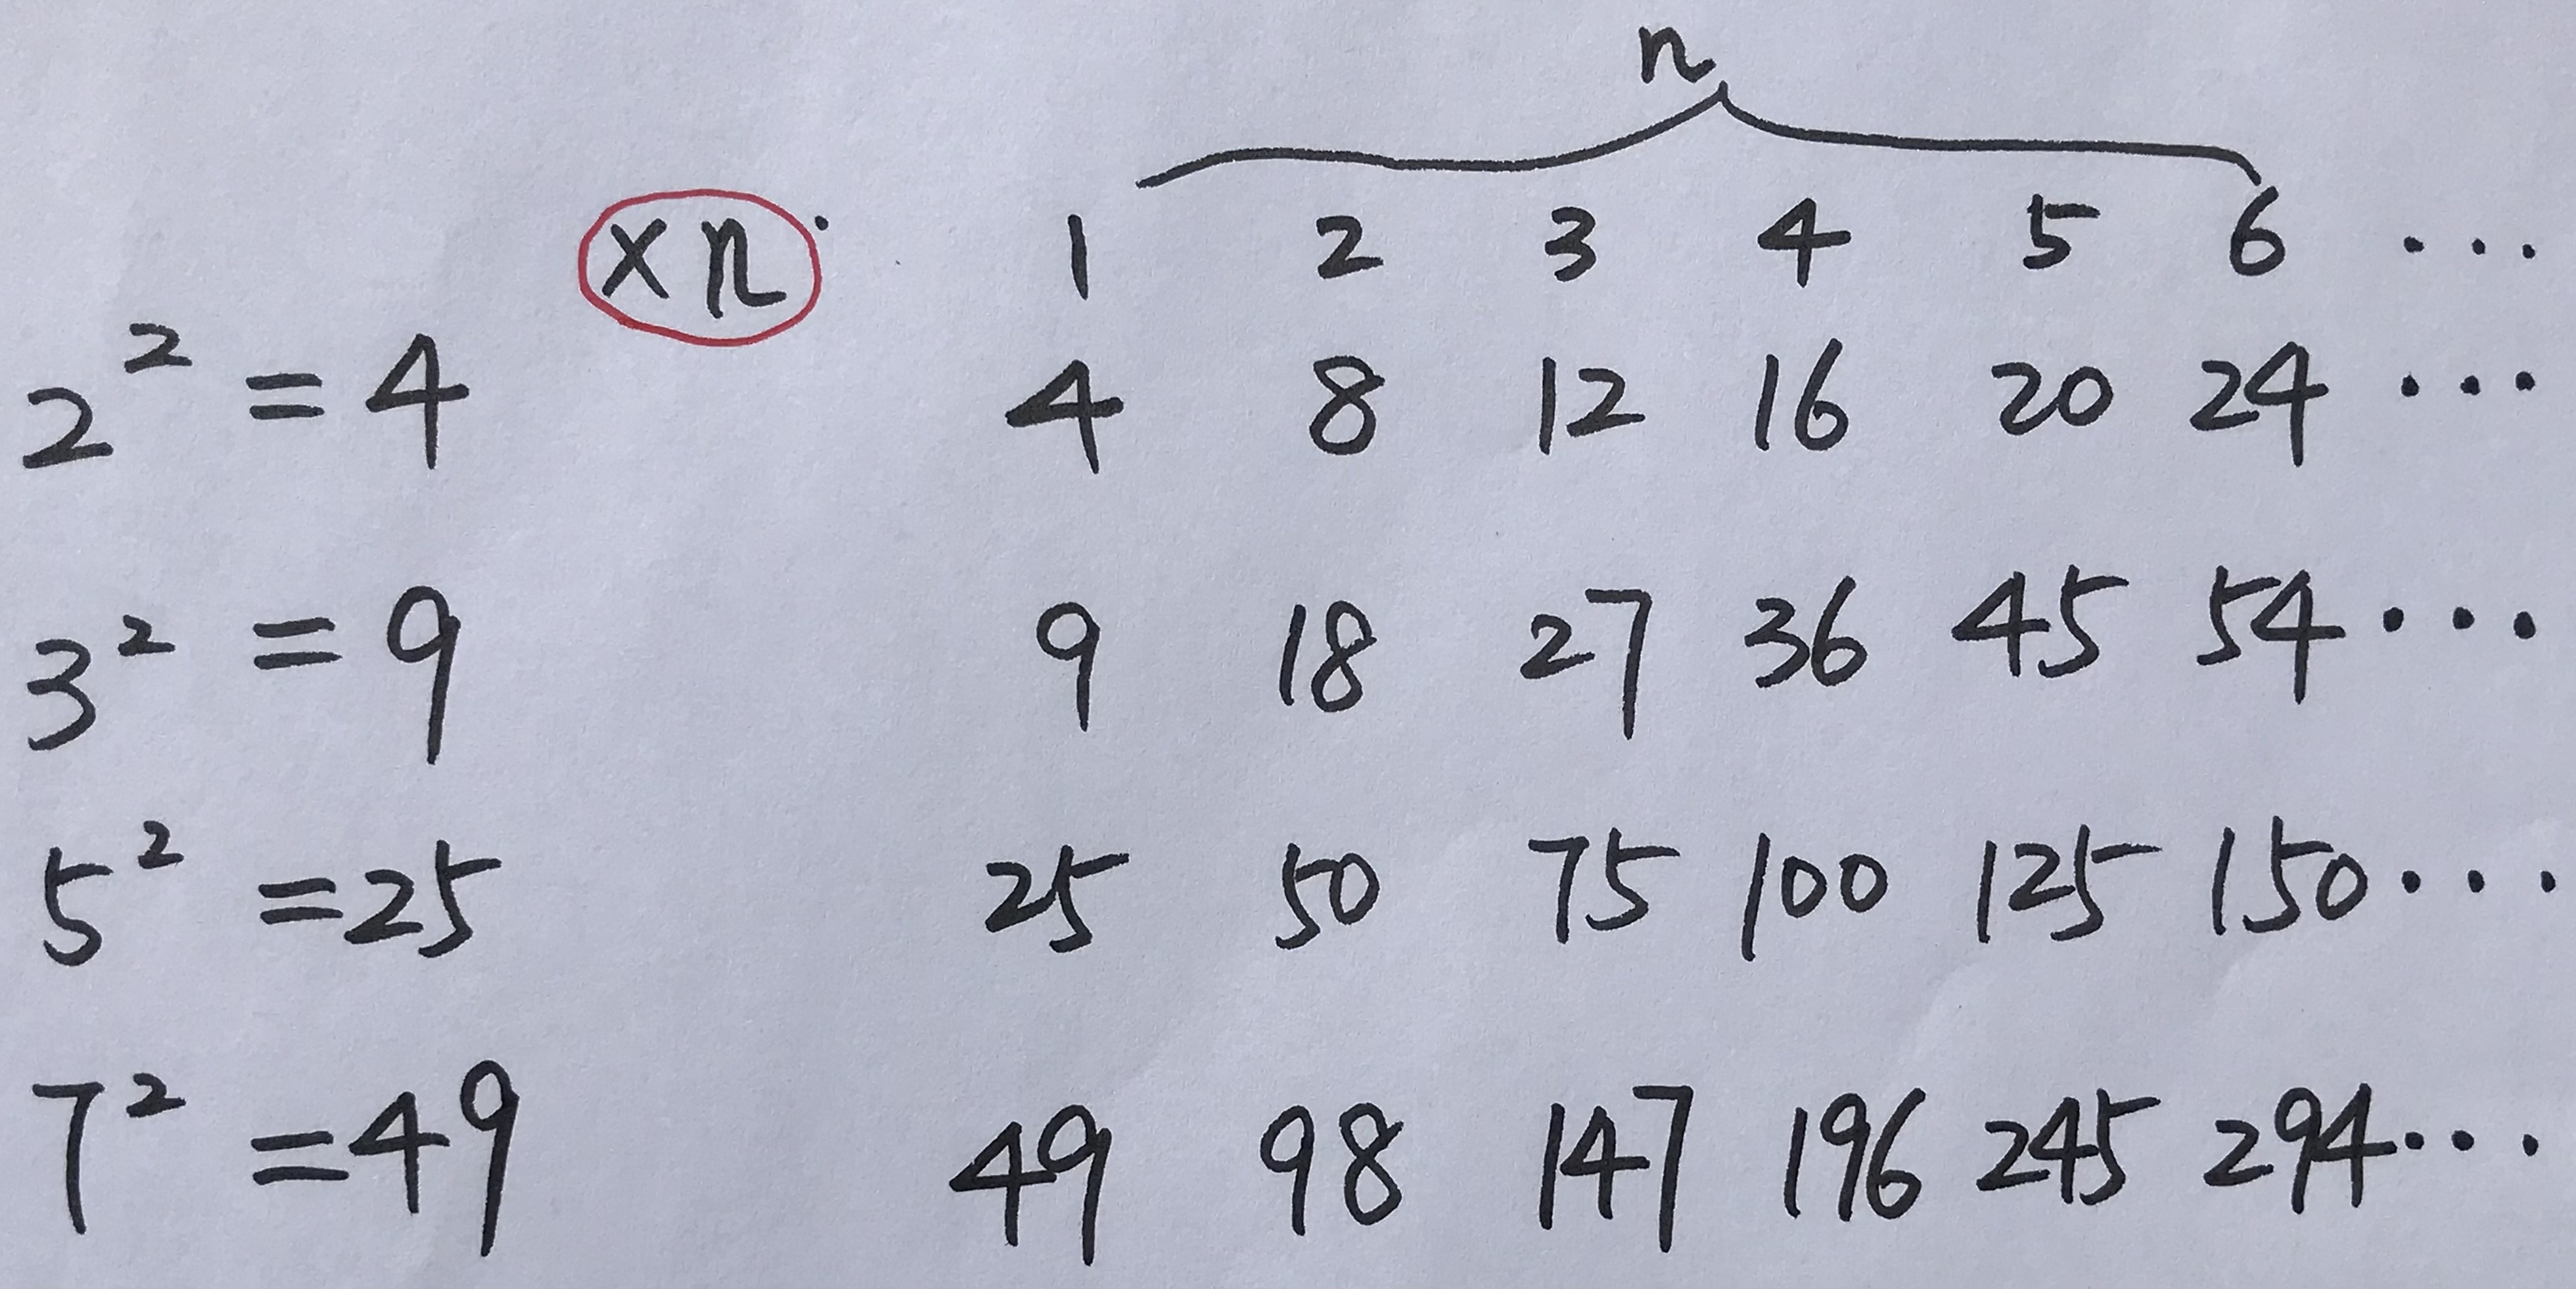 n
×n 1 2 3 4 5 6 ...
2² = 4 4 8 12 16 20 24 ...
3² = 9 9 18 27 36 45 54 ...
5² = 25 25 50 75 100 125 150 ...
7² = 49 49 98 147 196 245 294 ...